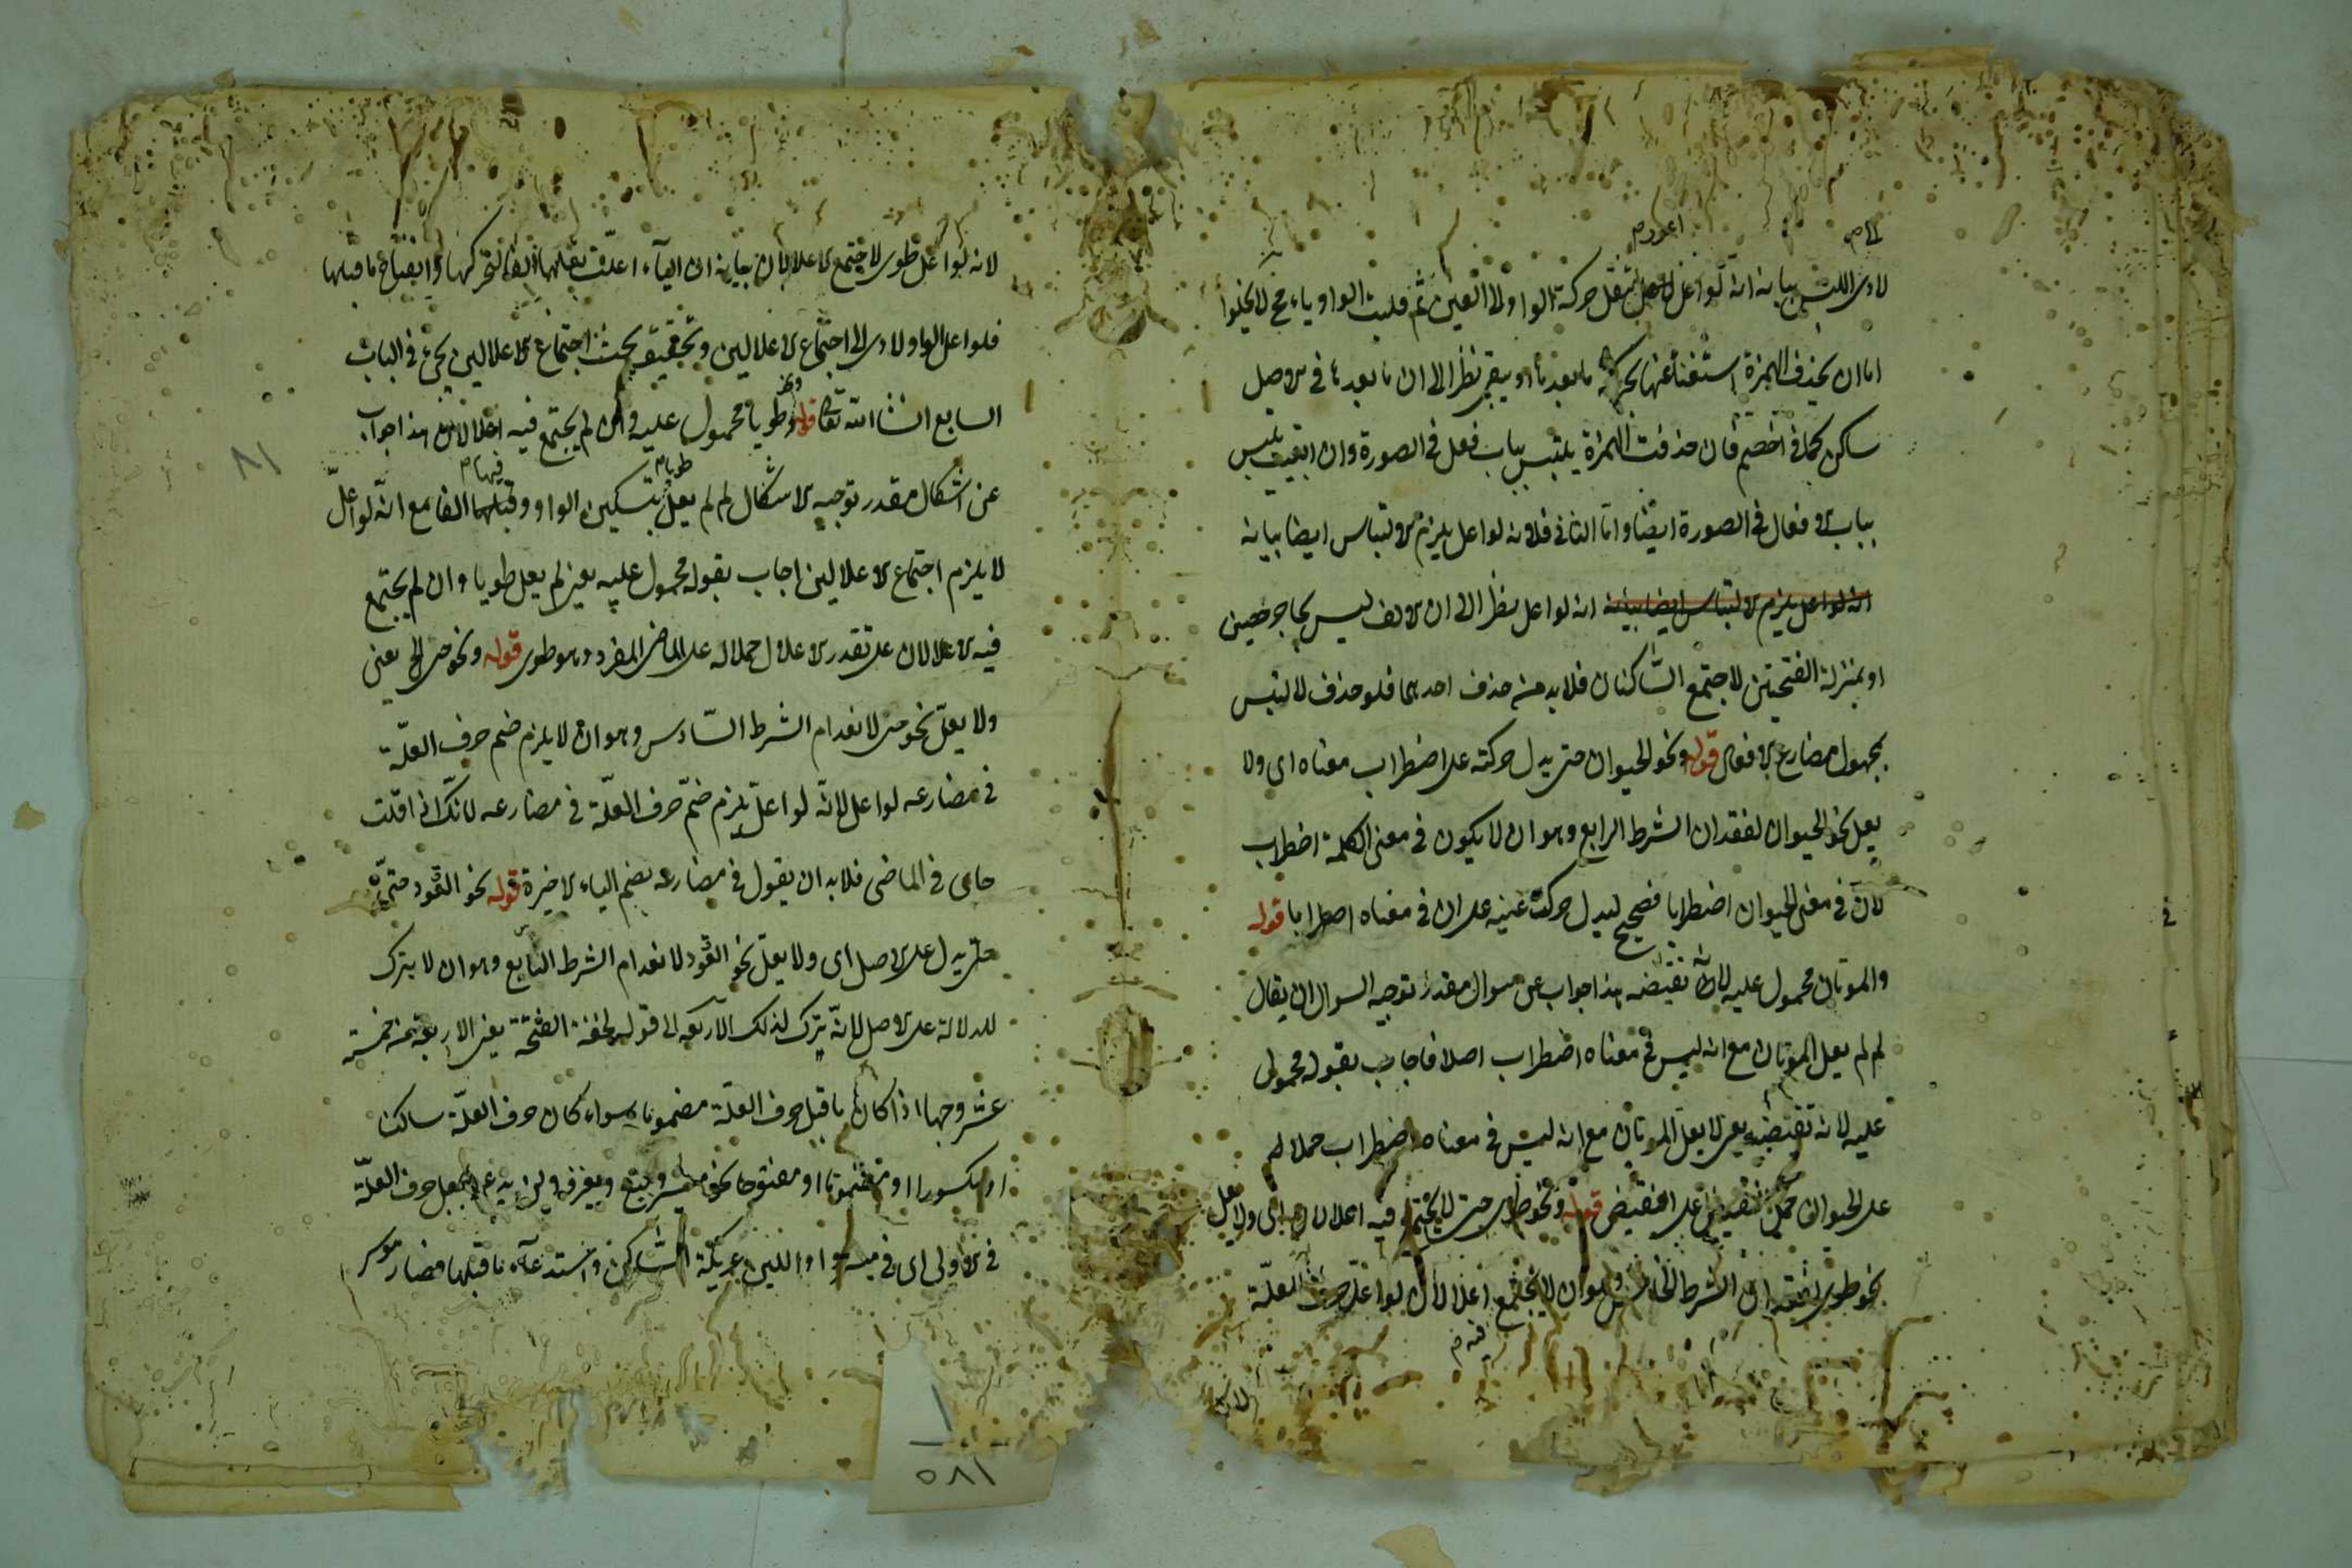 لادى اللبس بيانه انه لو اعل اعور م بنقل حركة الواو الى العين ثم قلبت الواو ياء فح لا يخلوا
اما ان يحذف الهمزة استغناء عنها بحركة ما بعدها او يبقى نظرا الى ان ما بعدها في الاصل
ساكن كما في اخصم فان حذفت الهمزة يلتبس بباب فعل في الصورة وان ابقيت يلتبس
بباب الافعال في الصورة ايضا واما الثاني فلانه لو اعل يلزم الالتباس ايضا بيانه
انه لو اعل يلزم الالتباس ايضا بيانه انه لو اعل نظرا الى ان الالف ليس بحاجز حصين
او بمنزلة الفتحتين لاجتمع الساكنان فلابد من حذف احدهما فلو حذف لالتبس
بمجهول مضارع الافعال قوله ونحو الحيوان حتى يدل حركته على اضطراب معناه اى ولا
يعل نحو الحيوان لفقدان الشرط الرابع وهو ان لا يكون في معنى الكلمة اضطراب
لان في معنى الحيوان اضطرابا فصحيح ليدل حركة عينه على ان في معناه اضطرابا قوله
والموتان محمول عليه لانه نقيضه هذا جواب عن سوال مقدر توجيه السوال ان يقال
لم لم يعل الموتان مع انه ليس في معناه اضطراب اصلا فاجاب بقوله محمول
عليه لانه نقيضه يعنى لا يعل الموتان مع انه ليس في معناه اضطراب حملا له
على الحيوان حمل النقيض على النقيض قوله ونحو طوى حتى لا يجتمع فيه اعلالان اى ولا يعل
نحو طوى لفقدان الشرط الخامس وهو ان لا يجتمع اعلالان لو اعل حرف العلة
فيه م
لانه
لانه لو اعل طوى لاجتمع الاعلالان بيانه ان الياء اعلت بقلبها الفا لتحركها وانفتاح ما قبلها
فلو اعل الواو لادى الى اجتماع الاعلالين وتحقيق بحث اجتماع الاعلالين يجئ في الباب
السابع انشا الله تعا قوله وطويا محمول عليه وان لم يجتمع فيه اعلالان هذا جواب
عن اشكال مقدر توجيه الاشكال لم لم يعل طويا م بتسكين الواو وقلبها الفا فيهما م مع انه لو اعل
لا يلزم اجتماع الاعلالين اجاب بقوله محمول عليه يعنى لم يعل طويا وان لم يجتمع
فيه الاعلالان على تقدير الاعلال حملا له على الماضى المفرد وهو طوى قوله ونحو حى الخ يعنى
ولا يعل نحو حى لانعدام الشرط السادس وهو ان لا يلزم ضم حرف العلة
في مضارعه لو اعل لانه لو اعل يلزم ضم حرف العلة في مضارعه لانك اذا قلت
حاى في الماضى فلابد ان يقول في مضارعه بضم الياء الاخيرة قوله نحو القود حتى
حتى يدل على الاصل اى ولا يعل نحو القود لانعدام الشرط السابع وهو ان لا يترك
للدلالة على الاصل لانه يترك لذلك الاربعة الى قوله لخفة الفتحة يعنى الاربعة من خمسة
عشر وجها اذا كان ما قبل حرف العلة مضموما سواء كان حرف العلة ساكنا
او مكسورا او مضموما او مفتوحا نحو ميسر وبيع ويغزو ولن يدعو يجعل حرف العلة
في الاولى اى في ميسر واوا للين عريكة الساكن واستدعاء ما قبلها فصار موسر
٨١
١
٥٨١